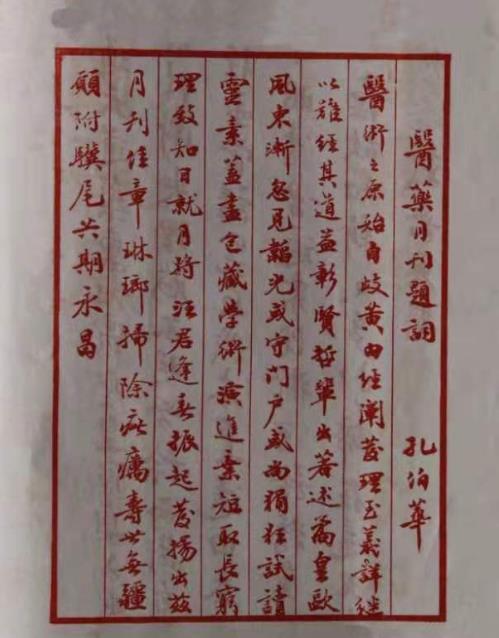 醫藥月刊題詞 孔伯華
醫術之原始自岐黃內經闡發理至義詳繼
以難經其道益彰賢哲輩出著述篇皇歐
風東漸忽見韜光或守门户或為猖狂試讀
靈素蓋盡包藏学術演進棄短取長窮
理致知日就月將汪君逢春振起發揚出兹
月刊佳章琳瑯掃除疵癘壽世無疆
願附驥尾共期永昌